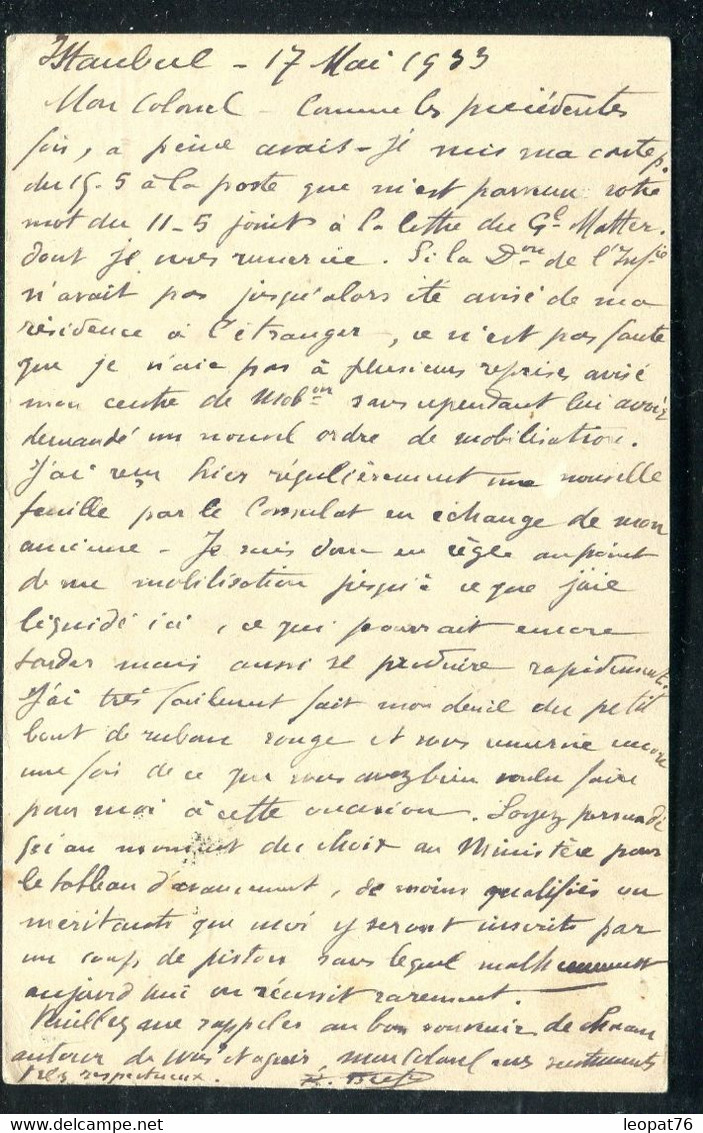 Istanbul - 17 Mai 1933
Mon Colonel - Comme les précédentes
fois, à peine avais-je mis ma carte p.
du 15-5 à la poste que m'est parvenu votre
mot du 11-5 joint à la lettre du Gal Matter.
dont je vous remercie. Si la Don de l'Infie
n'avait pas jusqu'alors été avisé de ma
résidence à l'étranger, ce n'est pas faute
que je n'aie pas à plusieurs reprises avisé
mon centre de Mobon sans cependant lui avoir
demandé un nouvel ordre de mobilisation.
J'ai reçu hier régulièrement une nouvelle
feuille par le Consulat en échange de mon
ancienne - Je suis donc en règle au point
de vue mobilisation jusqu'à ce que j'aie
liquidé ici, ce qui pourrait encore
tarder mais aussi se produire rapidement.
J'ai très facilement fait mon deuil du petit
bout de ruban rouge et vous remercie encore
une fois de ce que vous avez bien voulu faire
pour moi à cette occasion. Soyez persuadé
qu'au moment du choix au Ministère pour
le tableau d'avancement, de moins qualifiés ou
méritants que moi y seront inscrits par
un coup de piston sans lequel malheureusement
aujourd'hui on réussit rarement.
Veuillez me rappeler au bon souvenir de chacun
autour de vous et agréer, mon Colonel mes sentiments
très respectueux.
leopat76